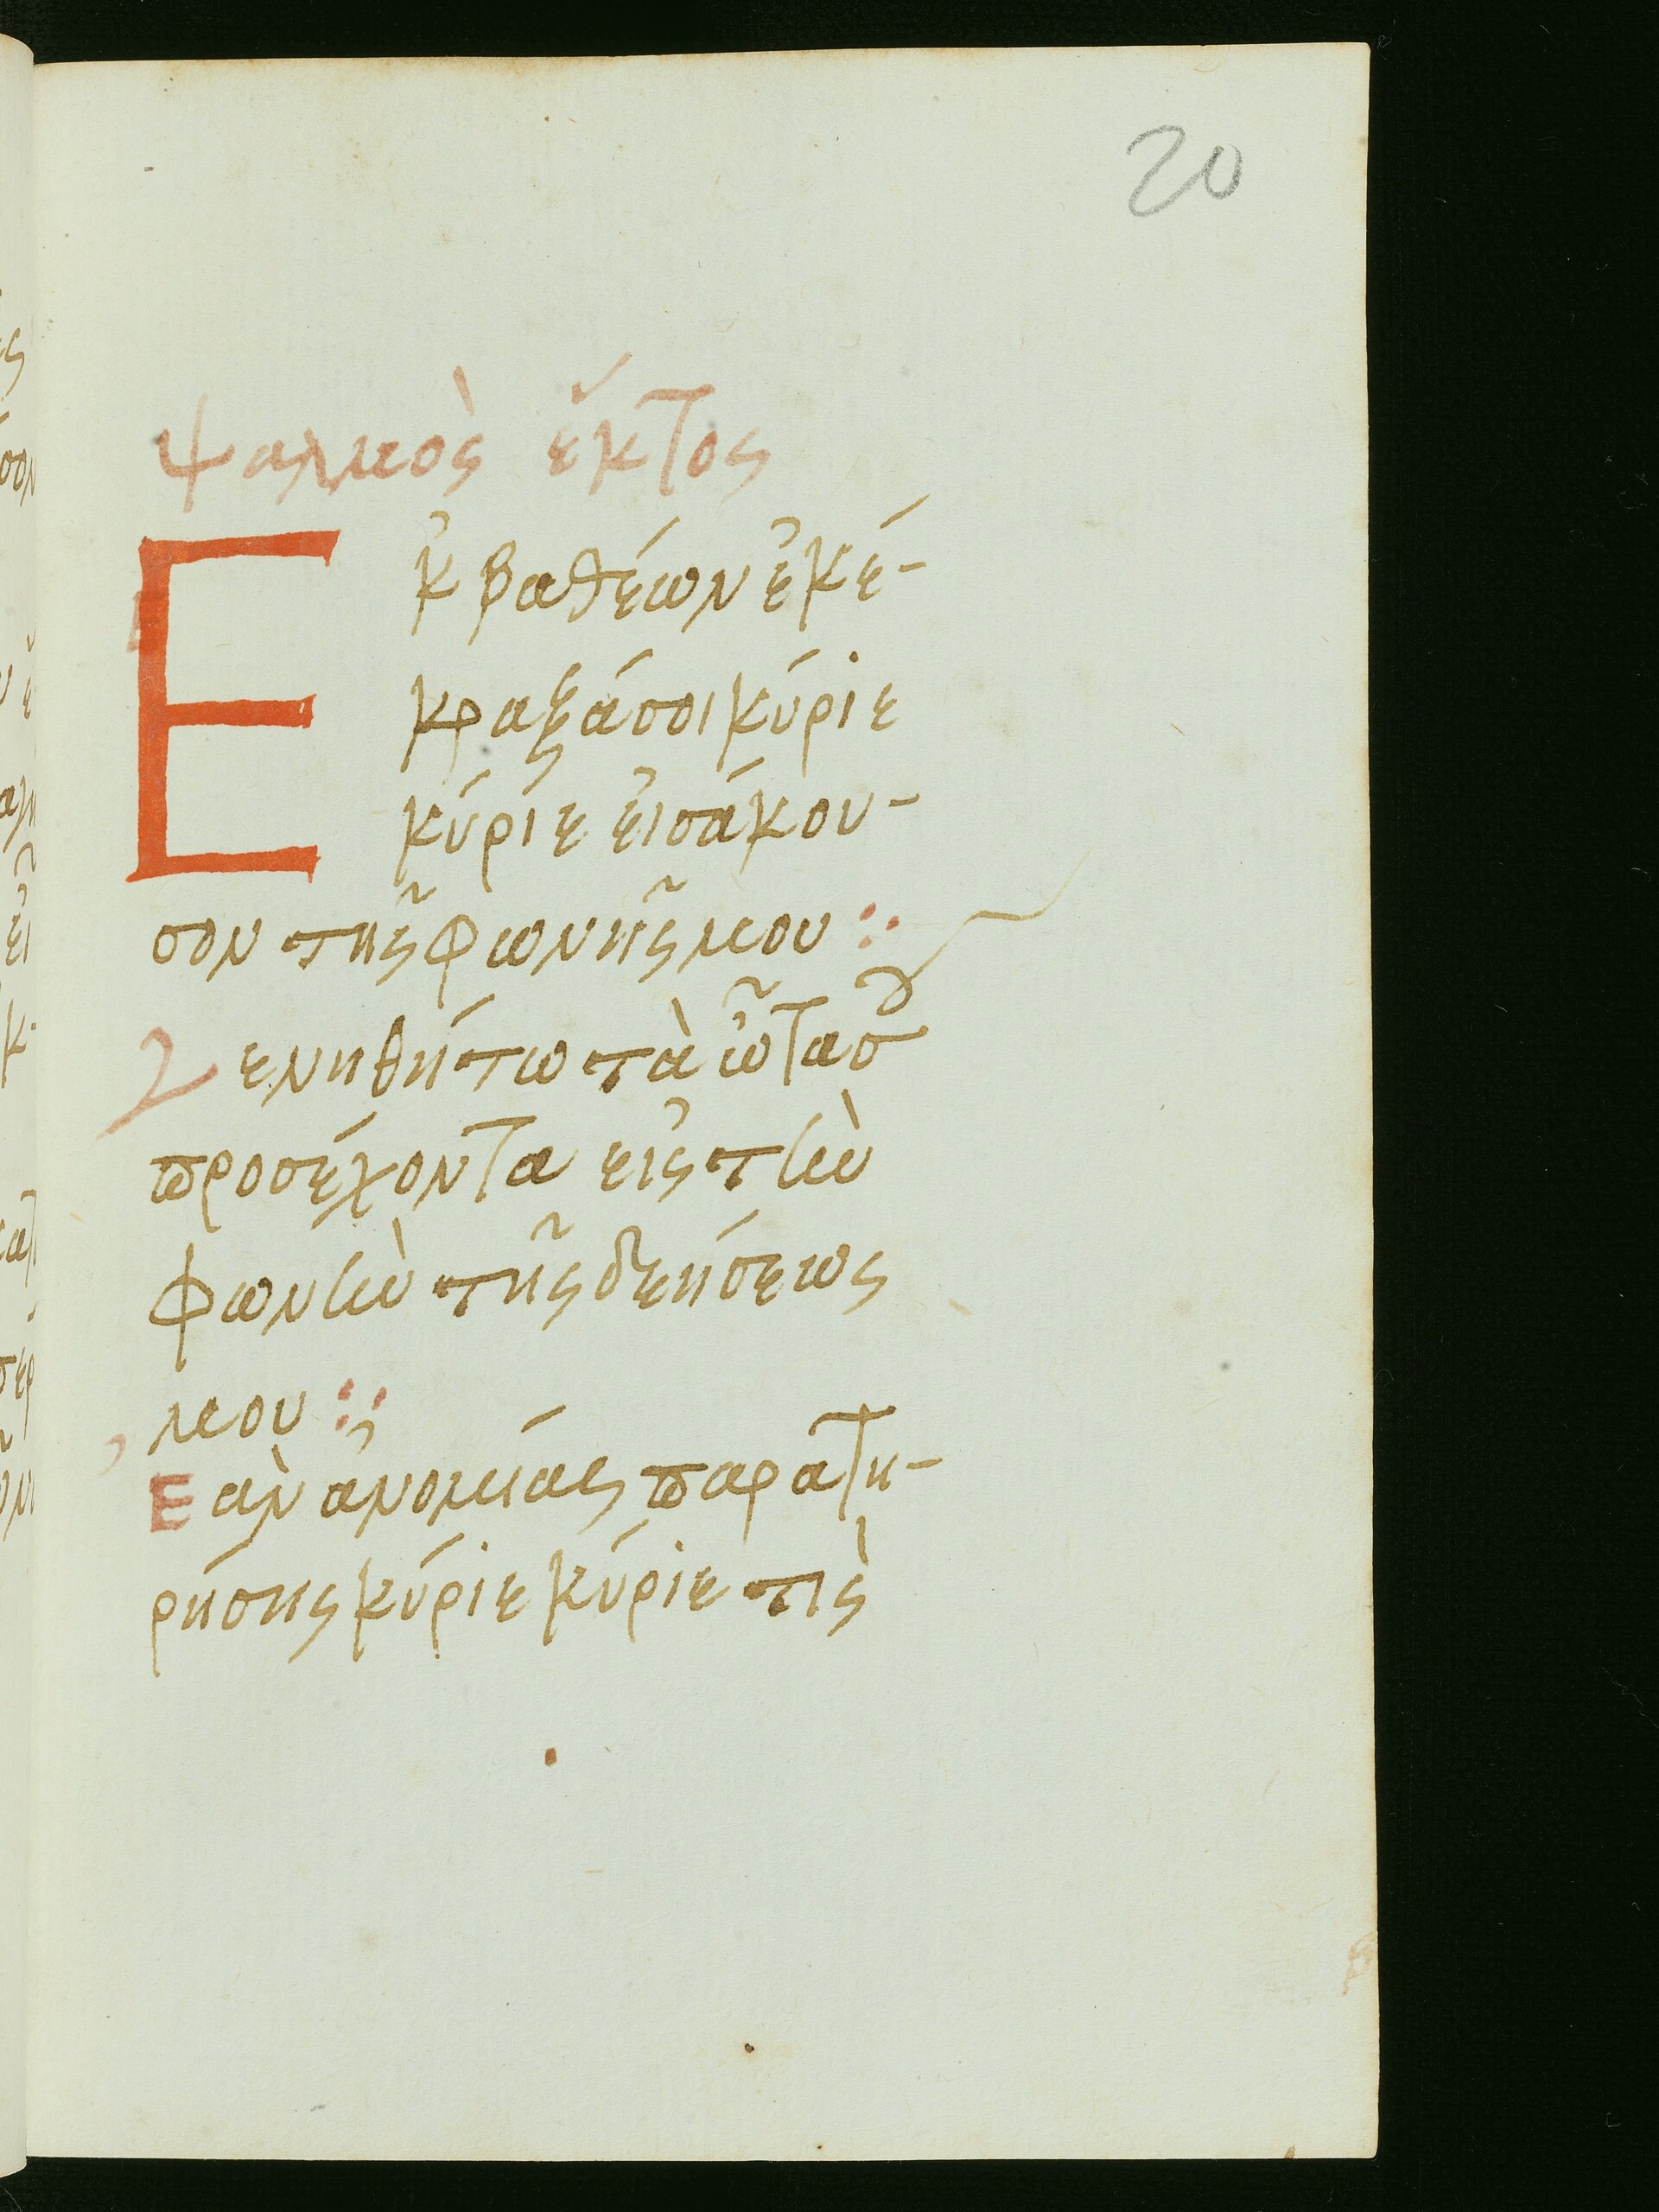 20
ψαλμὸς ἕκτος
Ἐκ βαθέων ἐκέ-
κραξά σοι κύριε
κύριε εἰσάκου-
σον τῆς φωνῆς μου ::
γενηθήτω τὰ ὦτα σου
προσέχοντα εἰς τὴν
φωνὴν τῆς δεήσεως
μου ::
Εὰν ἀνομίας παρατη-
ρήσης κύριε κύριε τὶς